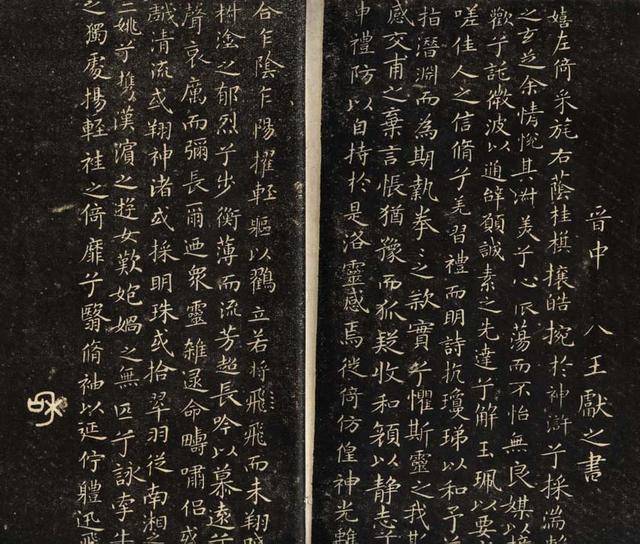 晉中 八王獻之書
嬉左倚采旄右蔭桂棋攘皓捥於神滸兮採湍
之玄芝余情悅其淑美兮心振蕩而不怡無良媒以接
歡兮託微波以通辭願誠素之先達兮解玉珮以要
嗟佳人之信脩兮羌習禮而明詩抗瓊珶以和予兮
指潛淵而為期執拳之款實兮懼斯靈之我欺
感交甫之棄言悵猶豫而狐疑收和顏以靜志兮
申禮防以自持於是洛靈感焉徙倚仿偟神光離
合乍陰乍陽擢輕軀以鶴立若將飛飛而未翔踐
椒塗之郁烈兮步蘅薄而流芳超長吟以慕遠兮
聲哀厲而彌長爾迺眾靈雜遝命疇嘯侶或
戲清流或翔神渚或採明珠或拾翠羽從南湘之
二姚兮攜漢濱之遊女歎匏媧之無匹兮詠牽牛
之獨處揚輕袿之倚靡兮翳脩袖以延佇體迅飛